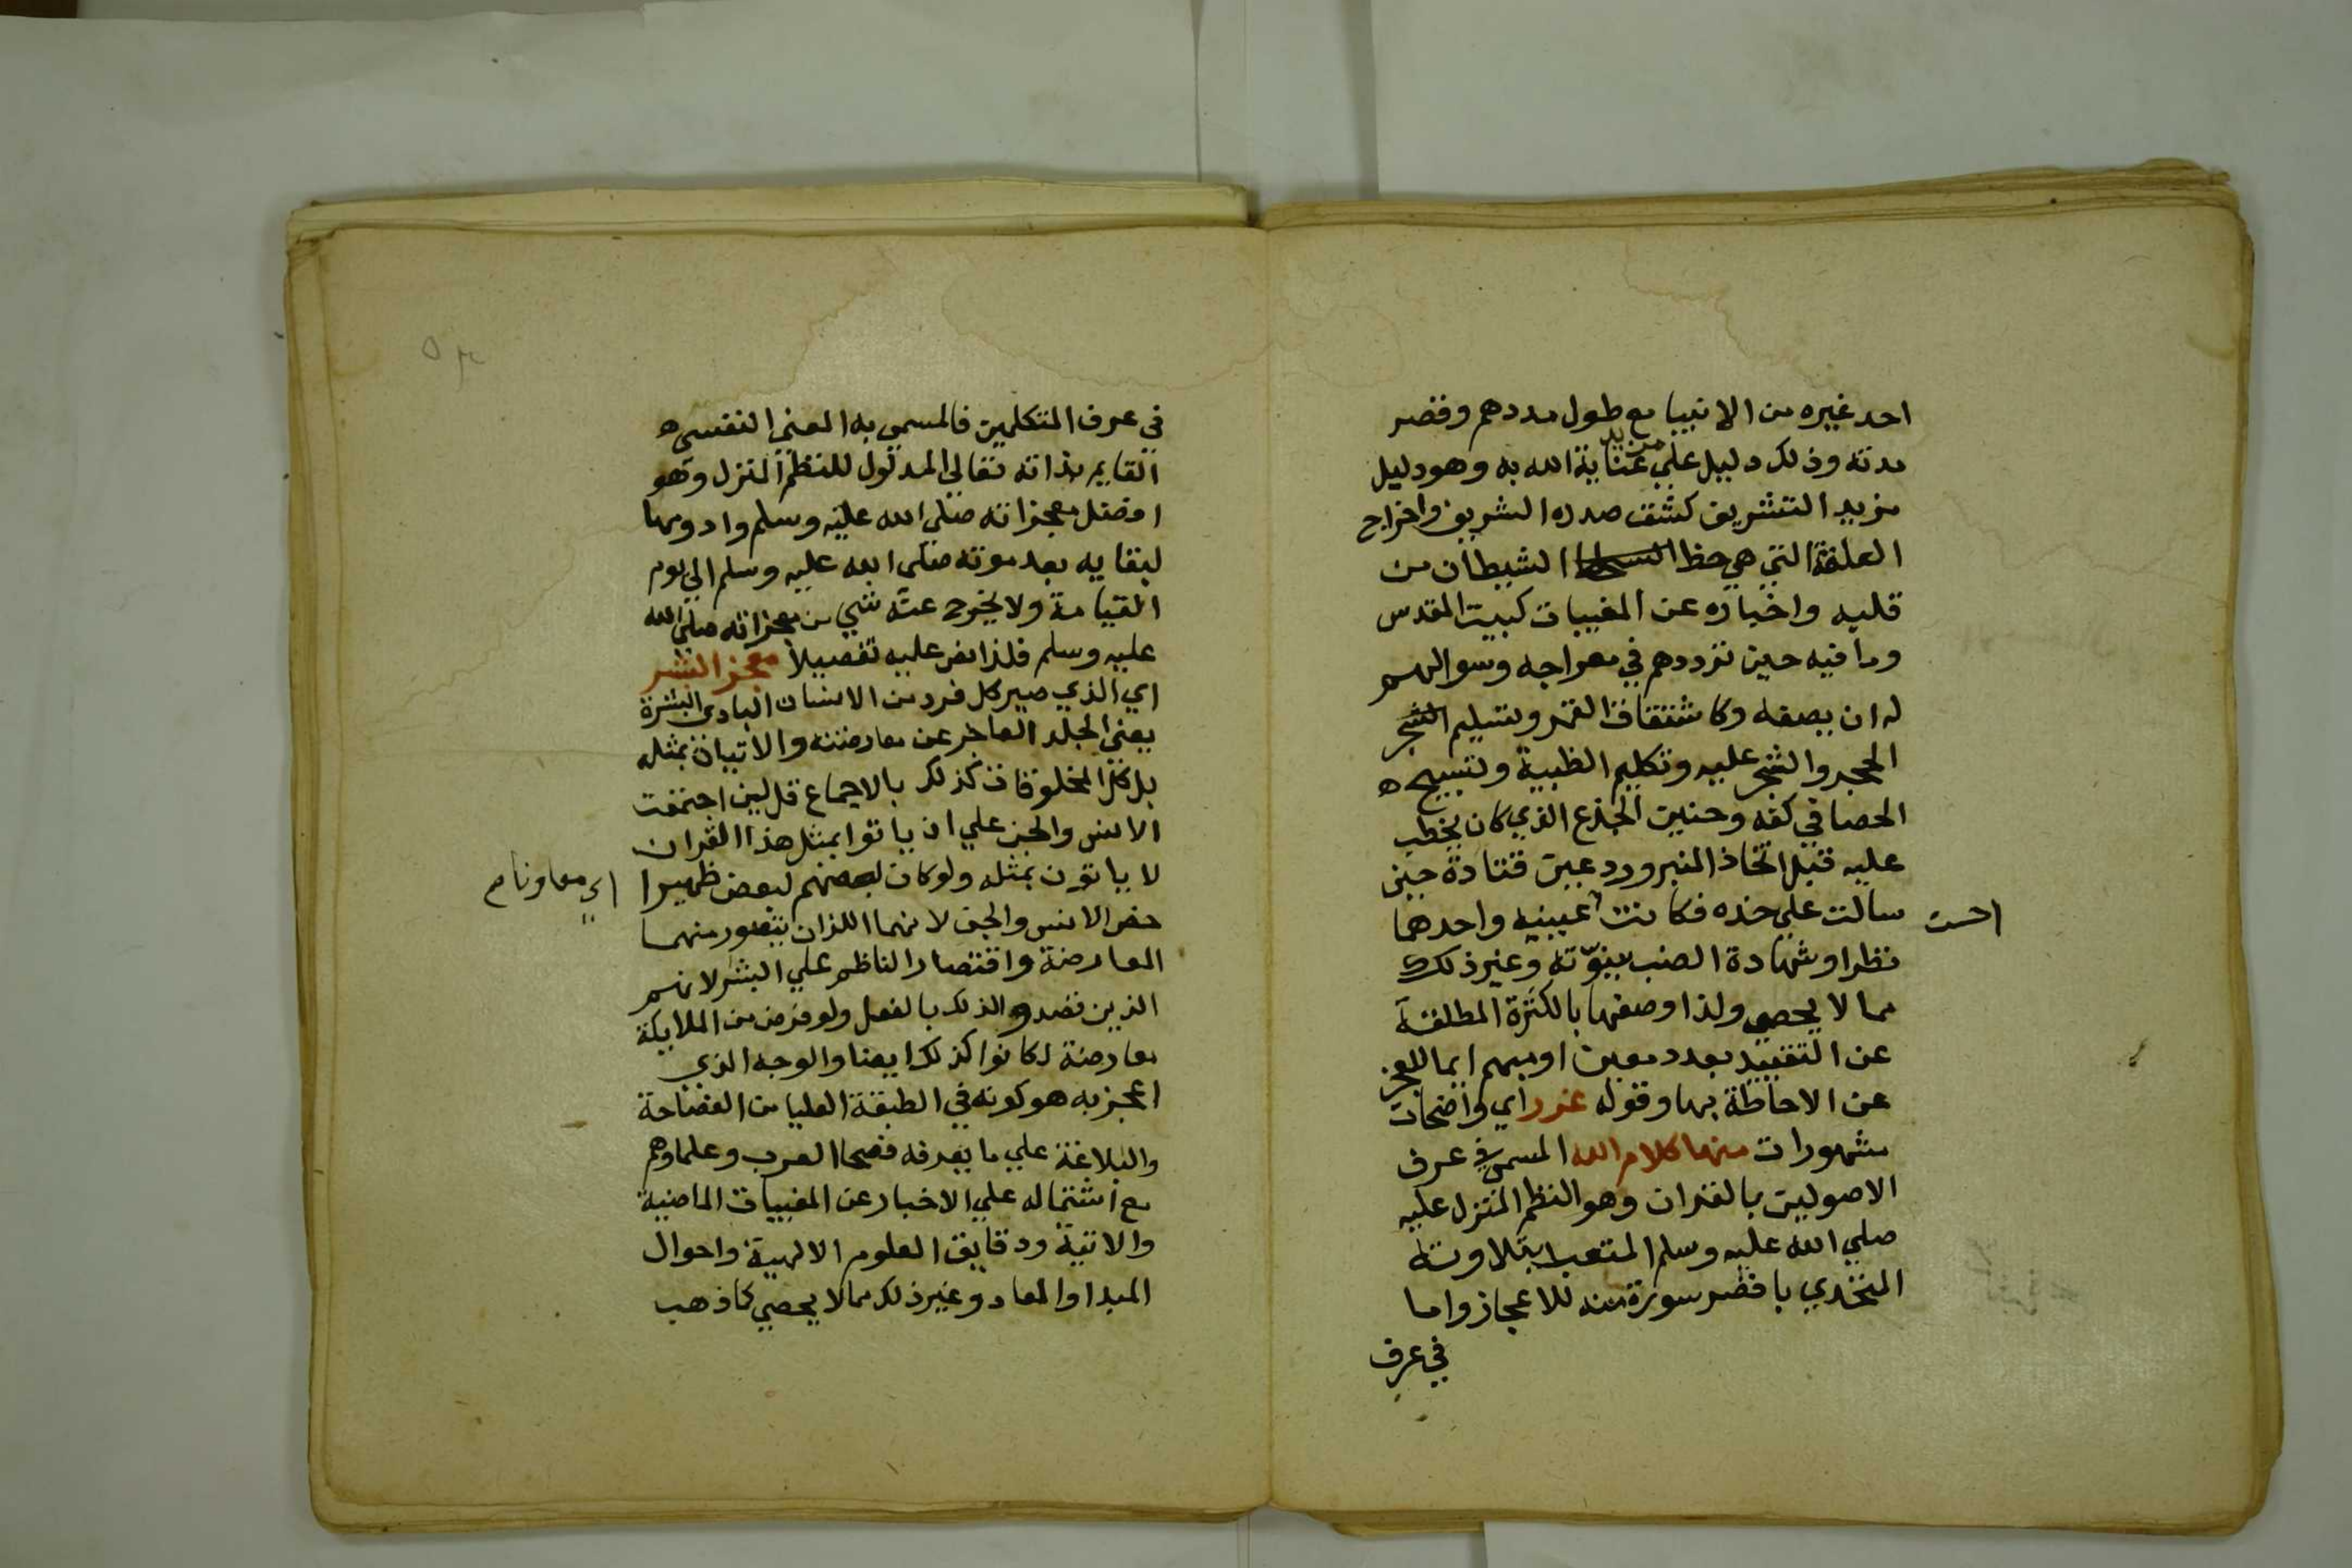 احد غيره من الانبيا مع طول مددهم وقصر
مدته وذلك دليل علي مزيد عناية الله به وهو دليل
مزيد التشريف كشف صدره الشريف واخراج
العلقة التي هي حظ الشيطان من
قلبه واخباره عن المغيبات كبيت المقدس
وما فيه حين ترددهم في معراجه وسوالهم
له ان يصفه وكانشقاق القمر وتسليم
الحجر والشجر عليه وتكليم الظبية وتسبيح ه
الحصا في كفه وحنين الجذع الذي كان يخطب
عليه قبل اتخاذ المنبر ورد عين قتادة حين
سالت علي خده فكانت احسن عينيه واحدهما
نظرا وشهادة الضب بنبوّته وغير ذلك
مما لا يحصي ولذا وصفها بالكثرة المطلقة
عن التقييد بعدد معين او مبهم ايما للعجز
عن الاحاطة بها وقوله غرر اي واضحات
مشهورات منها كلام الله المسمي في عرف
الاصوليين بالقران وهو النظم المنزل عليه
صلي الله عليه وسلم المتعبد بتلاوته
المتحدي باقصر سورة منه للاعجاز واما
في عرف
في عرف المتكلمين فالمسمي به المعني النفسي ه
القايم بذاته تعالي المدلول للنظم المنزل وهو
افضل معجزاته صلي الله عليه وسلم وادومها
لبقايه بعد موته صلي الله عليه وسلم الي يوم
القيامة ولا يخرج عنه شي من معجزاته صلي الله
عليه وسلم فلذا نص عليه تفصيلا معجز البشر
اي الذي صير كل فرد من الانسان البادي البشرة
يعني الجلد العاجز عن معارضته والاتيان بمثله
بل كل المخلوقات كذلك بالاجماع قل لين اجتمعت
الانس والجن علي ان ياتوا بمثل هذا القران
لا ياتون بمثله ولو كان بعضهم لبعض ظهيرا
اي معاونا م
خص الانس والجن لانهما اللذان يتصور منهما
المعارضة واقتصار الناظم علي البشر لانهم
الذين قصدوا لذلك بالفعل ولو فرض من الملايكة
معارضة لكانوا كذلك ايضا والوجه الذي
اعجز به هو كونه في الطبقة العليا من الفصاحة
والبلاغة علي ما يعرفه فصحا العرب وعلماوهم
مع اشتماله علي الاخبار عن المغيبات الماضية
والاتية ودقايق العلوم الالهية واحوال
المبدا والمعاد وغير ذلك مما لا يحصي كما ذهب